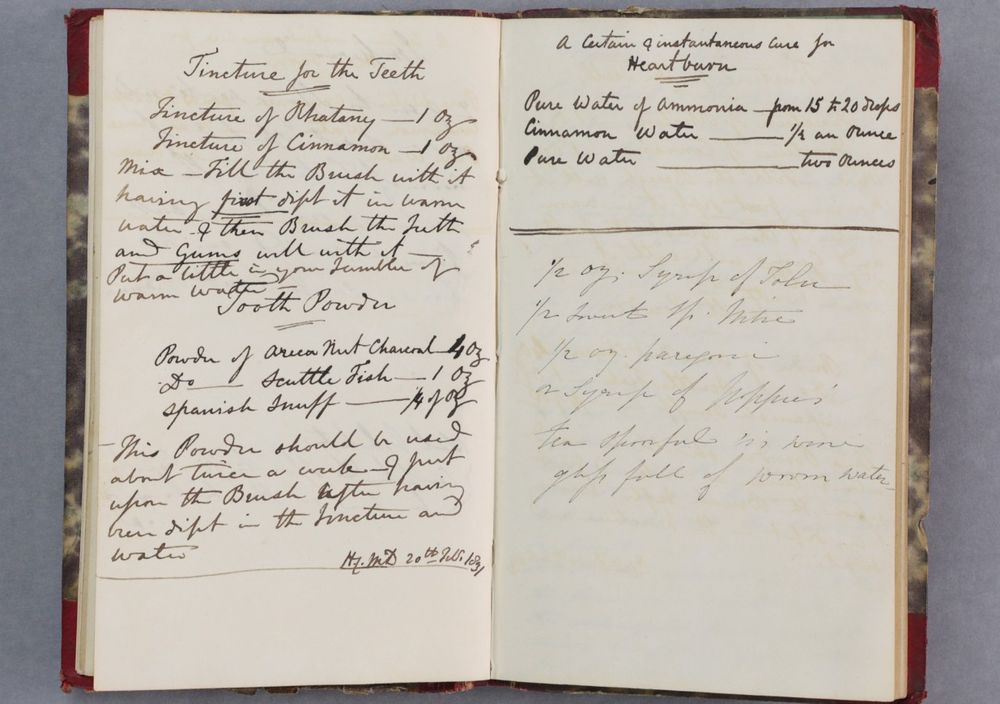 Tincture for the Teeth
Tincture of Rhatany — 1 Oz
Tincture of Cinnamon — 1 Oz
Mix — Fill the Brush with it
having first dipt it in warm
water & then Brush the Teeth
and Gums well with it —
Put a little in your Tumbler of
warm water —
Tooth Powder
Powder of Areca Nut Charcoal — 4 Oz
Do — Scuttle Fish — 1 Oz
Spanish Snuff — 1/4 of Oz
This Powder should be used
about twice a week — & put
upon the Brush after having
been dipt in the Tincture and
water
20th Feb. 1831
A Certain & instantaneous Cure for
Heartburn
Pure Water of Ammonia — from 15 to 20 drops
Cinnamon Water — 1/2 an Ounce
Pure Water — two Ounces
1/2 oz. Syrip of Tolu
1/2 Sweet Sp. Nitre
1/2 oz. paregoric
or Syrip of Poppies
tea spoonful in wine
glass full of warm water —